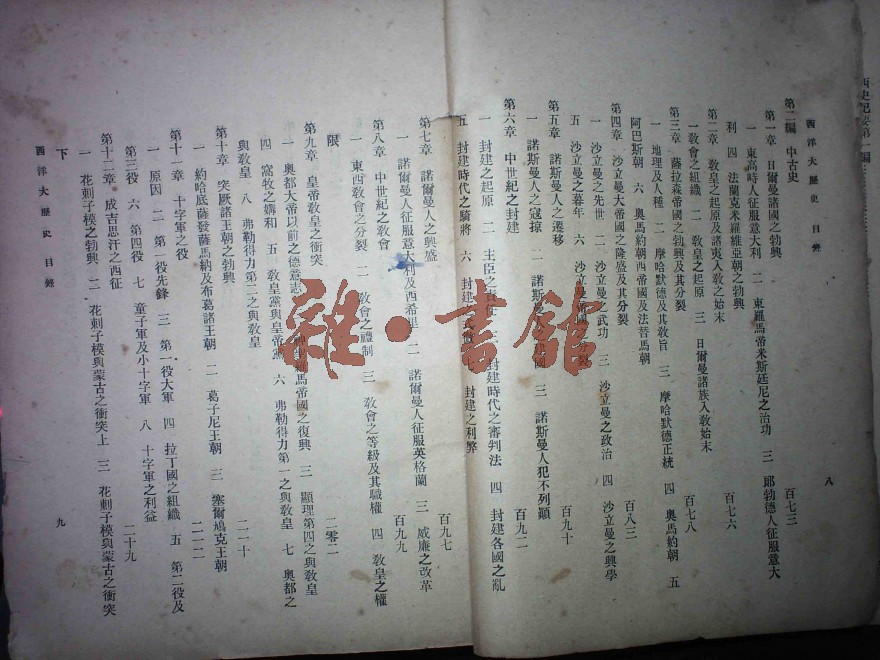 西洋大歷史 目錄
八
第二編 中古史
第一章 日曼諸國之勃興 百七三
一 東高時人征服意大利 二 東羅馬帝米斯廷尼之治功 三 郎勃德人征服意大
利 四 法蘭克米羅維亞朝之勃興
第二章 敎皇之起原及諸夷人敎之始末 百七六
一 敎會之組織 二 敎皇之起原 三 日爾曼諸族人敎始末
第三章 薩拉森帝國之勃興及其分裂 百七八
一 地理及人種 二 摩哈默德及其敎旨 三 摩哈默德正統 四 奧馬約朝 五
阿巴斯朝 六 奧馬約朝西帝國及法替馬朝
第四章 沙立曼大帝國之隆盛及其分裂 百八三
一 沙立曼之先世 二 沙立曼之武功 三 沙立曼之政治 四 沙立曼之興學
五 沙立曼之暮年 六 沙立曼帝國之分裂
第五章 諾斯曼人之遷移 百九十
一 諾斯曼人之寇掠 二 諾斯曼人 三 諾斯曼人犯不列顛
第六章 中世紀之封建 百九二
一 封建之起原 二 主臣之責任 三 封建時代之審判法 四 封建各國之亂
五 封建時代之騎將 六 封建 七 封建之利弊
第七章 諾爾曼人之興盛 百九七
一 諾爾曼人征服意大利及西希里 二 諾爾曼人征服英格蘭 三 威廉之改革
第八章 中世紀之敎會 百九九
一 東西敎會之分裂 二 敎會之禮制 三 敎會之等級及其職權 四 敎皇之權
限
第九章 皇帝敎皇之衝突 二零二
一 奧都大帝以前之德意志 二 神聖羅馬帝國之復興 三 顯理第四之與敎皇
四 窩牧之媾和 五 敎皇黨與皇帝黨 六 弗勒得力第一之與敎皇 七 奧都之
與敎皇 八 弗勒得力第二之與敎皇
第十章 突厥諸王朝之勃興 二一十
一 約哈底薩發薩馬納及布葛諸王朝 二 葛子尼王朝 三 塞爾鳩克王朝
第十一章 十字軍之役 二一二
一 原因 二 第一役先鋒 三 第一役大軍 四 拉丁國之組織 五 第二役及
第三役 六 第四役 七 童子軍及小十字軍 八 十字軍之利益
第十二章 成吉思汗之西征 二十九
一 花剌子模之勃興 二 花剌子模與蒙古之衝突上 三 花剌子模與蒙古之衝突
下
西洋大歷史 目錄
九
雜·書館